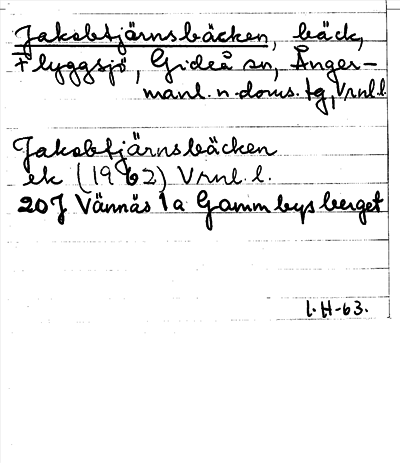 Jakobtjärnsbäcken, bäck,
+ lyggsjö, Gideå sn, Ånger-
manl. n. doms. tg, Vrnl.l.
Jakobtjärnsbäcken
ek (1962) Vrnl. l.
20J Vännäs 1a Gammbysberget
l. H-63.